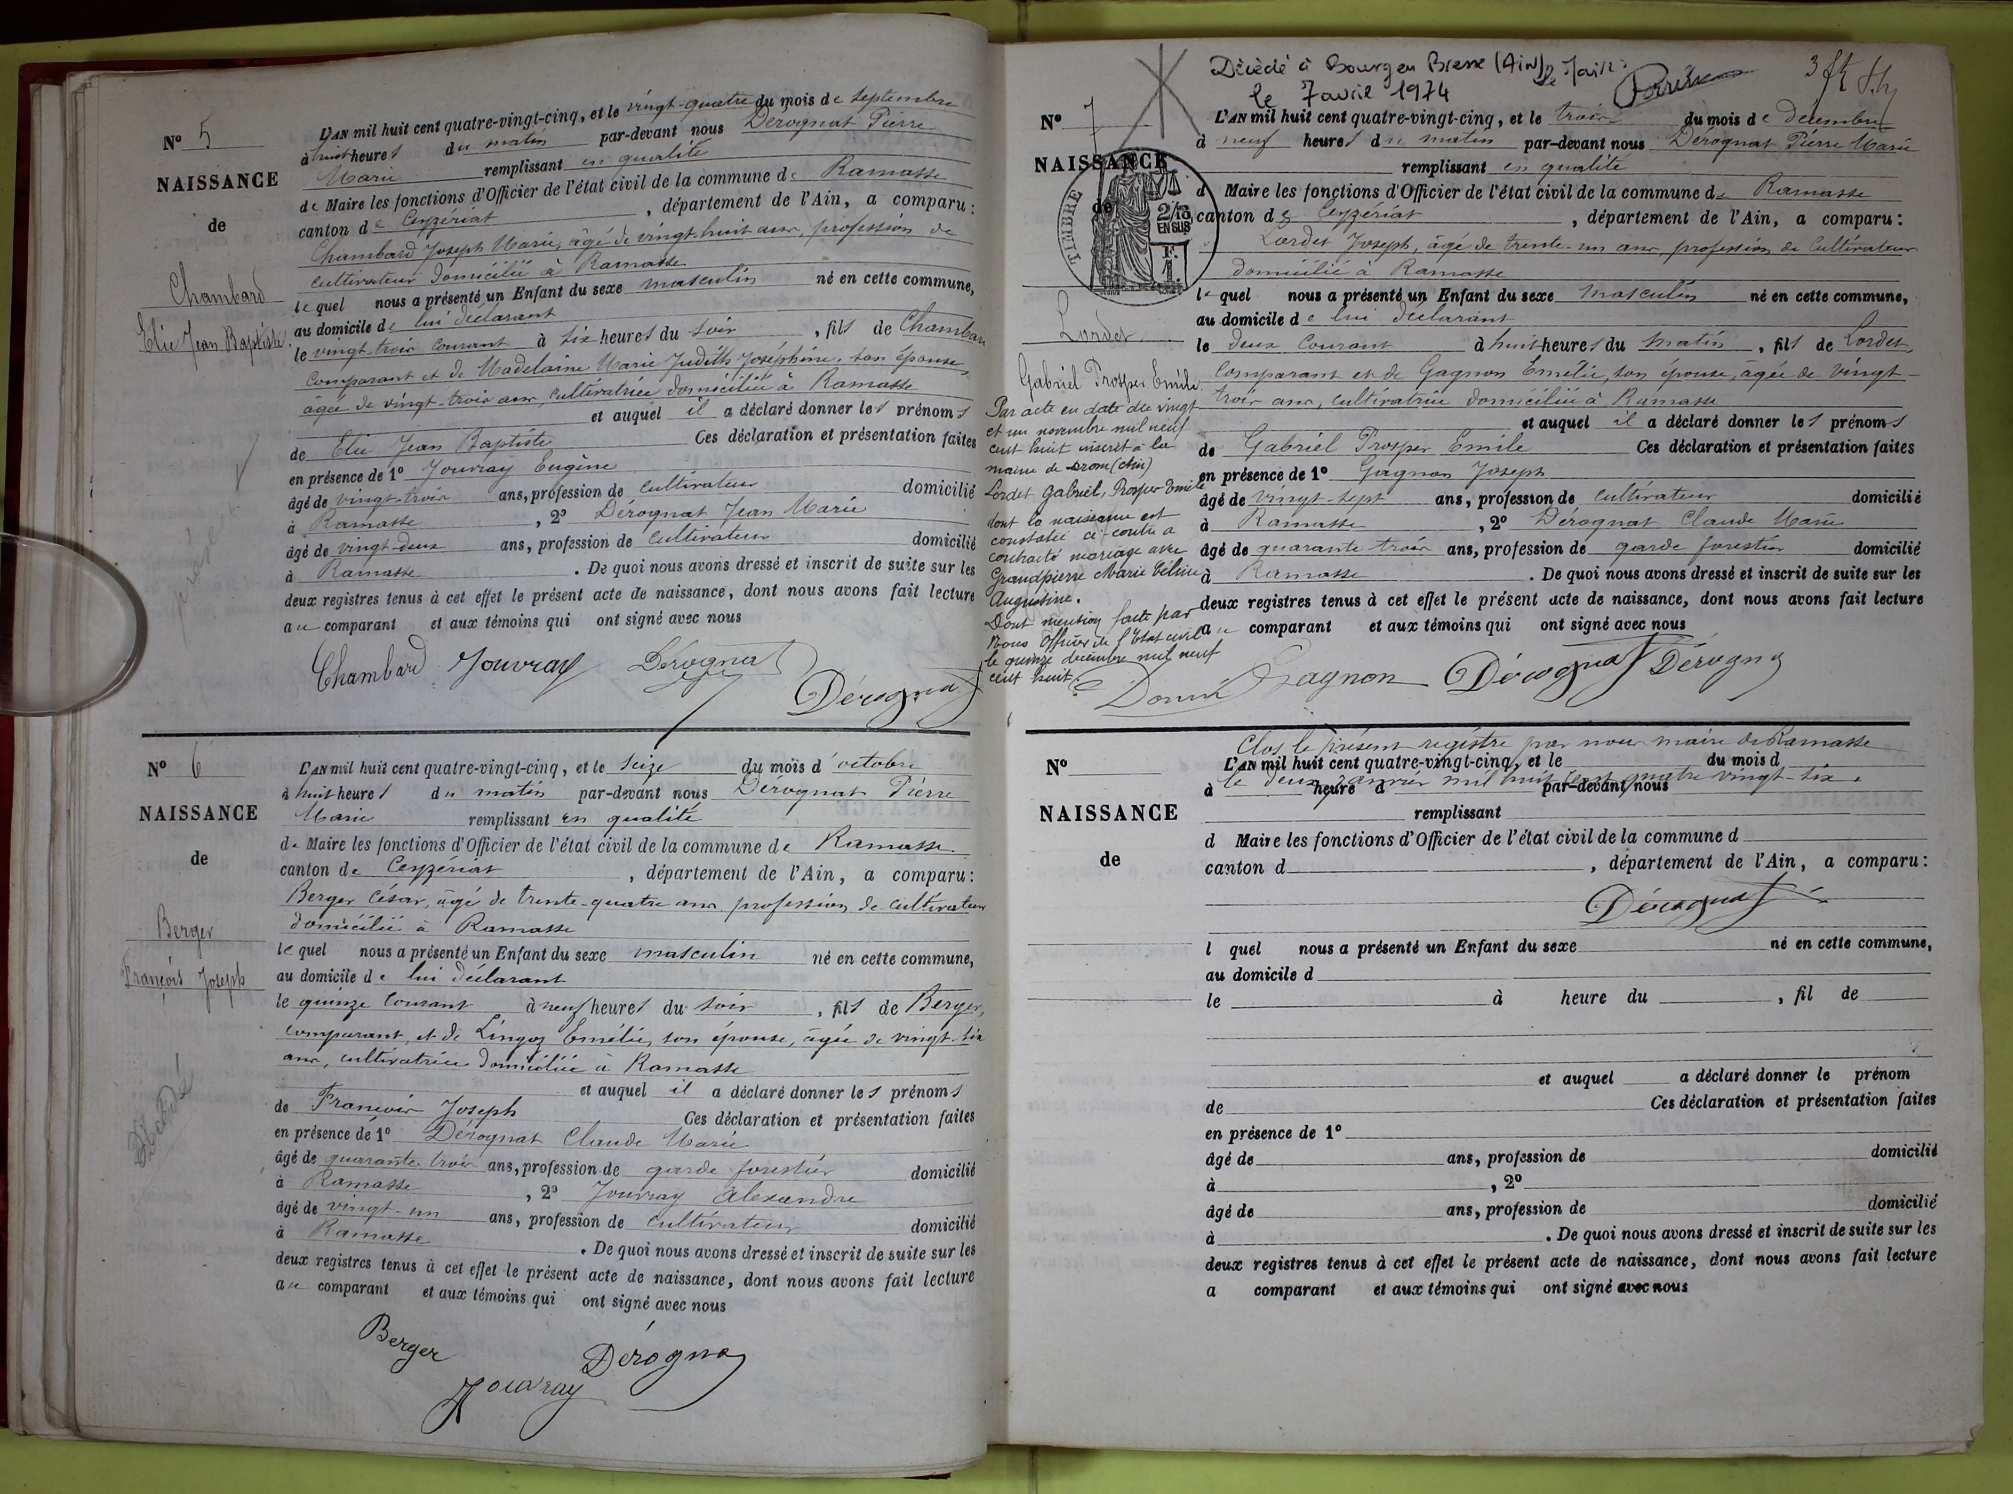 N° 5
NAISSANCE
de
Chambard
Elie Jean Baptiste
L'AN mil huit cent quatre-vingt-cinq, et le vingt-quatre du mois de septembre
à huit heures du matin par-devant nous Dérognat Pierre
Marie remplissant en qualité
de Maire les fonctions d'Officier de l'état civil de la commune de Ramasse
canton de Ceyzériat, département de l'Ain, a comparu:
Chambard Joseph Marie, âgé de vingt-huit ans, profession de
cultivateur domicilié à Ramasse
lequel nous a présenté un Enfant du sexe masculin né en cette commune,
au domicile de lui déclarant
le vingt-trois courant à six heures du soir, fils de Chambard
comparant et de Madelaine Marie Judith Joséphine, son épouse,
âgée de vingt-trois ans, cultivatrice domiciliée à Ramasse
et auquel il a déclaré donner les prénoms
de Elie Jean Baptiste Ces déclaration et présentation faites
en présence de 1° Jouvray Eugène
âgé de vingt-trois ans, profession de cultivateur domicilié
à Ramasse, 2° Dérognat Jean Marie
âgé de vingt-deux ans, profession de cultivateur domicilié
à Ramasse. De quoi nous avons dressé et inscrit de suite sur les
deux registres tenus à cet effet le présent acte de naissance, dont nous avons fait lecture
au comparant et aux témoins qui ont signé avec nous
Chambard Jouvray Dérognat
Dérognat
N° 6
NAISSANCE
de
Berger
François Joseph
Décédé
L'AN mil huit cent quatre-vingt-cinq, et le seize du mois d'octobre
à huit heures du matin par-devant nous Dérognat Pierre
Marie remplissant en qualité
de Maire les fonctions d'Officier de l'état civil de la commune de Ramasse
canton de Ceyzériat, département de l'Ain, a comparu:
Berger César, âgé de trente-quatre ans profession de cultivateur
domicilié à Ramasse
lequel nous a présenté un Enfant du sexe masculin né en cette commune,
au domicile de lui déclarant
le quinze courant à neuf heures du soir, fils de Berger,
comparant, et de Lingoz Emélie, son épouse, âgée de vingt-six
ans, cultivatrice domiciliée à Ramasse
et auquel il a déclaré donner les prénoms
de François Joseph Ces déclaration et présentation faites
en présence de 1° Dérognat Claude Marie
âgé de quarante-trois ans, profession de garde forestier domicilié
à Ramasse, 2° Jouvray Alexandre
âgé de vingt-un ans, profession de cultivateur domicilié
à Ramasse. De quoi nous avons dressé et inscrit de suite sur les
deux registres tenus à cet effet le présent acte de naissance, dont nous avons fait lecture
au comparant et aux témoins qui ont signé avec nous
Berger Dérognat
Jouvray
Décédé à Bourg en Bresse (Ain)
le 7 avril 1974
Le Maire
N° 7
NAISSANCE
de
TIMBRE
2/10 EN SUS
F. 1
Lordet
Gabriel Prosper Emile
Par acte en date du vingt
et un novembre mil neuf
cent huit inscrit à la
mairie de Drom (Ain)
Lordet Gabriel, Prosper Emile
dont la naissance est
constatée ci-contre a
contracté mariage avec
Grandpierre Marie Céline
Augustine.
Dont mention faite par
Nous Officier de l'Etat civil
le quinze décembre mil neuf
cent huit.
L'AN mil huit cent quatre-vingt-cinq, et le trois du mois de décembre
à neuf heures du matin par-devant nous Dérognat Pierre Marie
remplissant en qualité
d Maire les fonctions d'Officier de l'état civil de la commune de Ramasse
canton de Ceyzériat, département de l'Ain, a comparu:
Lordet Joseph, âgé de trente-un ans, profession de cultivateur
domicilié à Ramasse
lequel nous a présenté un Enfant du sexe masculin né en cette commune,
au domicile de lui déclarant
le deux courant à huit heures du matin, fils de Lordet,
comparant et de Gagnon Emélie, son épouse, âgée de vingt-
trois ans, cultivatrice domiciliée à Ramasse
et auquel il a déclaré donner les prénoms
de Gabriel Prosper Emile Ces déclaration et présentation faites
en présence de 1° Gagnon Joseph
âgé de vingt-sept ans, profession de cultivateur domicilié
à Ramasse, 2° Dérognat Claude Marie
âgé de quarante-trois ans, profession de garde forestier domicilié
à Ramasse. De quoi nous avons dressé et inscrit de suite sur les
deux registres tenus à cet effet le présent acte de naissance, dont nous avons fait lecture
au comparant et aux témoins qui ont signé avec nous
Gagnon Dérognat Dérognat
N°
NAISSANCE
de
Clos le présent registre par nous maire de Ramasse
L'AN mil huit cent quatre-vingt-cinq, et le du mois d
le deux janvier mil huit cent quatre vingt-six.
à heure d par-devant nous
remplissant
d Maire les fonctions d'Officier de l'état civil de la commune d
canton d, département de l'Ain, a comparu:
Dérognat
l quel nous a présenté un Enfant du sexe né en cette commune,
au domicile d
le à heure du, fil de
et auquel a déclaré donner le prénom
de Ces déclaration et présentation faites
en présence de 1°
âgé de ans, profession de domicilié
à, 2°
âgé de ans, profession de domicilié
à. De quoi nous avons dressé et inscrit de suite sur les
deux registres tenus à cet effet le présent acte de naissance, dont nous avons fait lecture
a comparant et aux témoins qui ont signé avec nous